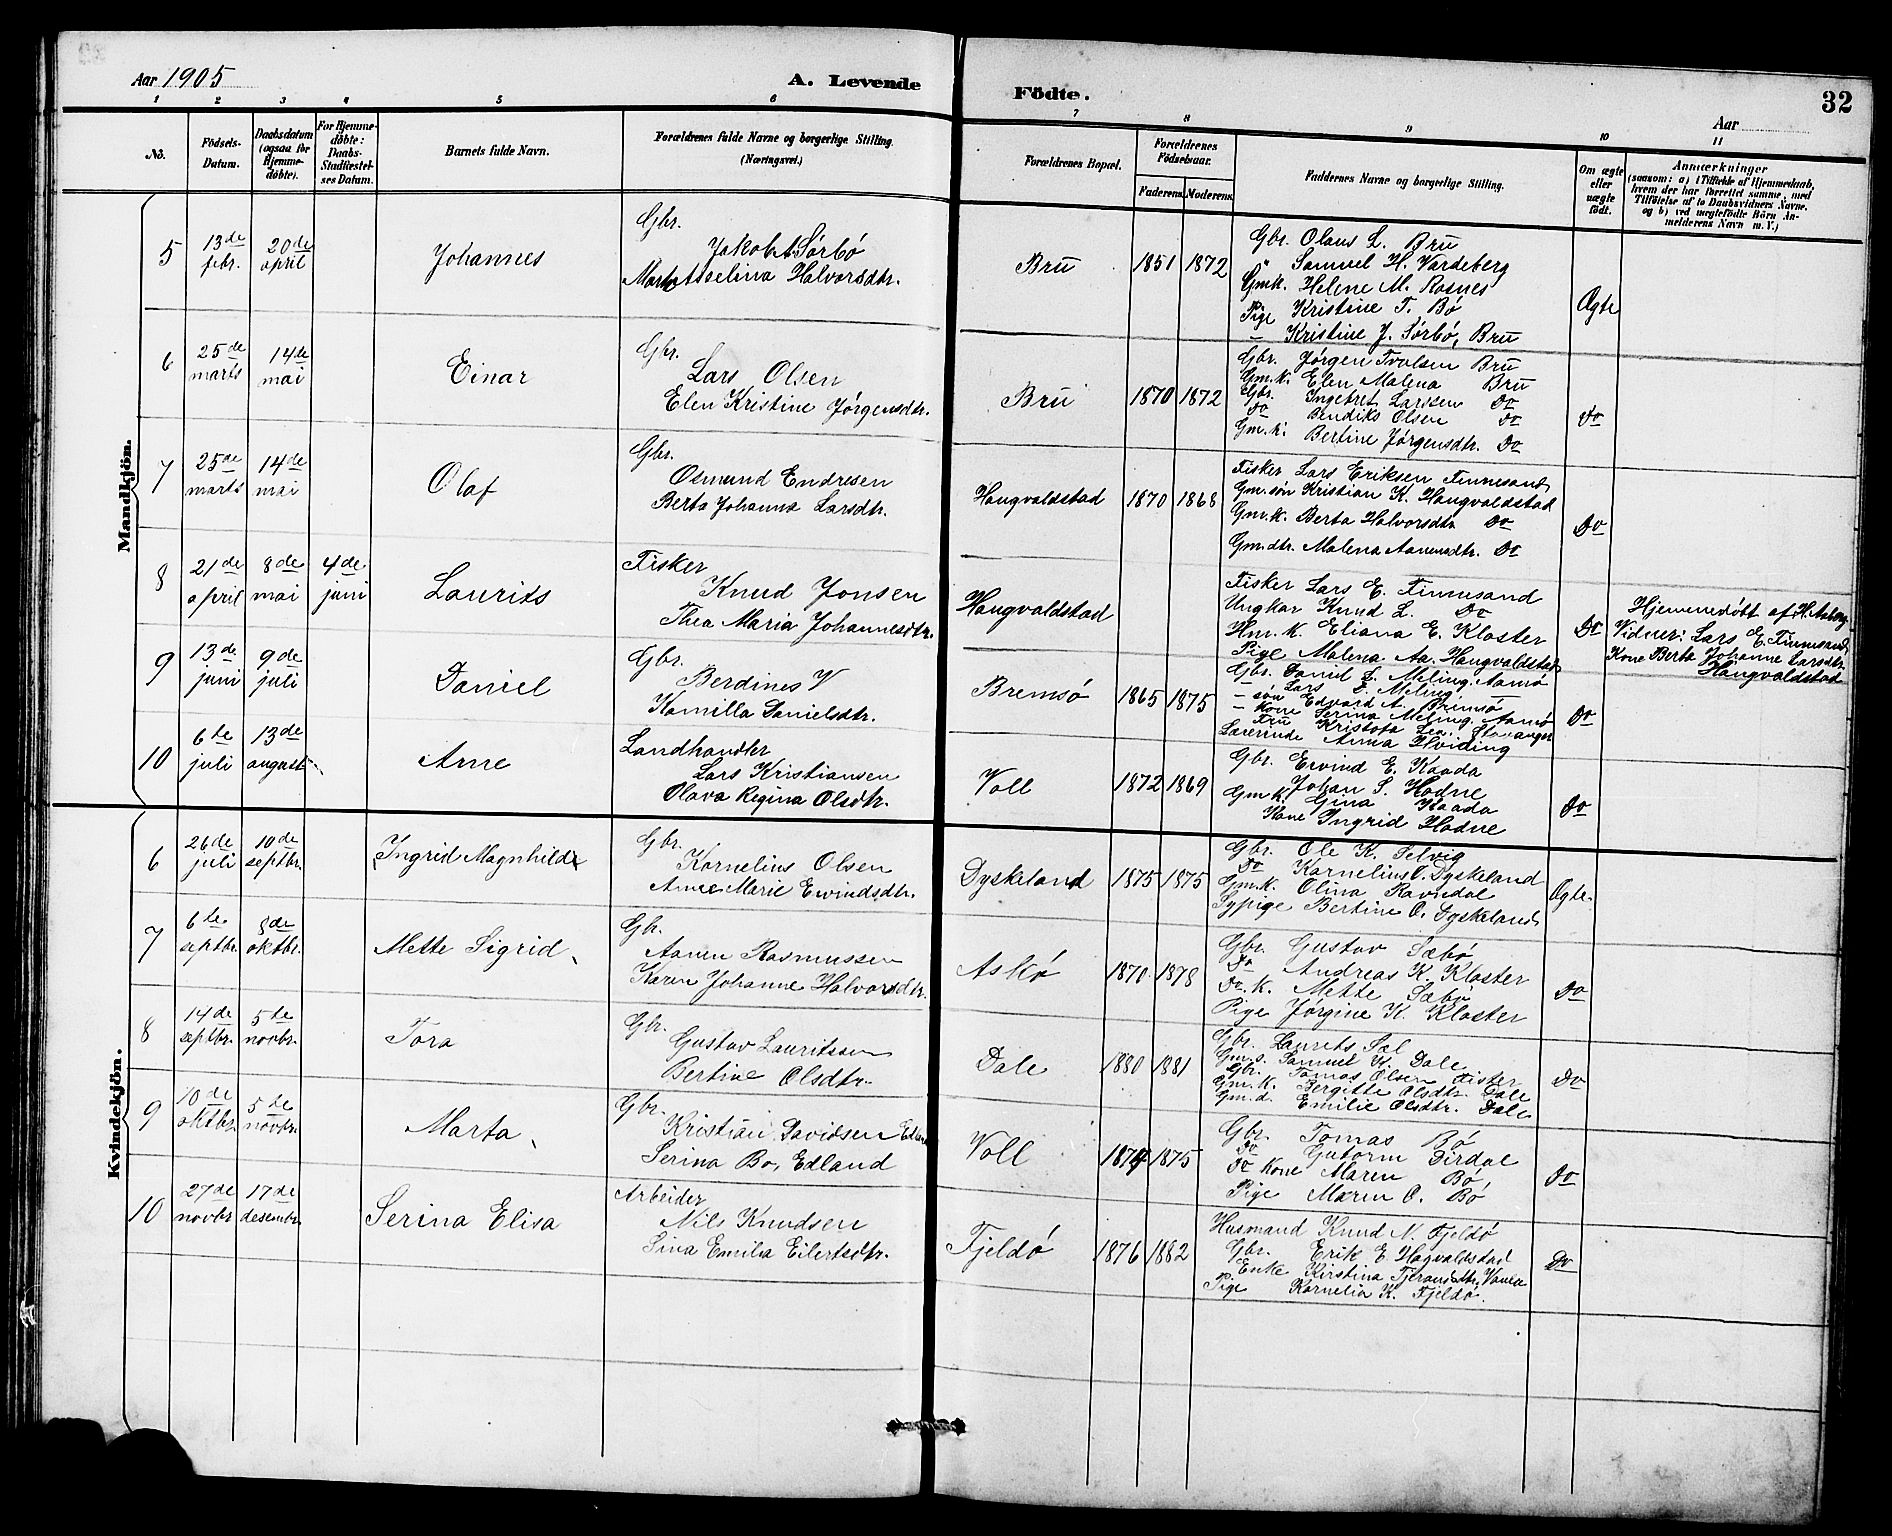 Aar 1905
A. Levende
Födte.
32
Aar
1 2 3 4 5 6 7 8 9 10 11
No.
Födsels-Datum.
Daabsdatum (ogsaa for Hjemme-döbte).
For Hjemme-döbte: Daabs-Stadfæstel-ses Datum.
Barnets fulde Navn.
Forældrenes fulde Navne og borgerlige Stilling.
(Næringsvei.)
Forældrenes Bopæl.
Forældrenes Födselsaar.
Faderens. Moderens.
Faddernes Navne og borgerlige Stilling.
Om ægte eller uægte födt.
Anmærkninger
(saasom: a) i Tilfælde af Hjemmedaab,
hvem der har forrettet samme, med
Tilföielse af to Daabsvidners Navne.
og b) ved uægtefödte Börn An-
melderens Navn m. V.)
Mandkjön.
5
13de febr.
20de april
Johannes
Gbr.
Jakob A Sørbø
Marta Asselina Halvorsdtr.
Bru
1851 1872
Gbr. Olaus L. Bru
" Samuel H. Vardeberg
Gmk. Helene M. Rosnes
Pige Kristine T. Bø
— Kristine J. Sørbø, Bru
Ægte
6
25de marts
14de mai
Einar
Gbr.
Lars Olsen
Elen Kristine Jørgensdtr.
Bru
1870 1872
Gbr. Jørgen Tvolsen Bru
Gm.k. Elen Malena Bru
Gbr. Ingebret Larssen Do
Do Bendiks Olsen Do
Gm.k. Bertine Jørgensdtr. Do
Do
7
25de marts
14de mai
Olaf
Gbr.
Osmund Endresen
Berta Johanna Larsdtr.
Haugvaldstad
1870 1868
Fisker Lars Eriksen Finnesand,
Gm.søn Kristian K. Haugvaldstad
Gm.k. Berta Halvorsdtr Do
Gm.dtr. Malena Aanensdtr. Do
Do
8
21de april
8de mai
4de juni
Laurits
Fisker
Knud Jonsen
Thea Maria Johannesdtr.
Haugvaldstad
Fisker Lars E. Finnesand
Ungkar Knud L. Do
Hm.k. Eliana E. Kloster
Pige Malena Aa. Haugvaldstad
Do
Hjemmedøbt af H.
Vidner: Lars E. Finnesand,
Kone Berta Johanne Larsdtr.
Haugvaldstad
9
13de juni
9de juli
Daniel
Gbr.
Berdines V
Kamilla Danielsdtr.
Bremsø
1865 1875
Gbr. Daniel L. Meling, Aamø
— søn Lars L. Meling
— Edvard A. Bremsø
— Kone Serina Meling, Aamø
Fru Kristofa Lea, Stavanger
Lærerinde Anna Hviding
Do
10
6te juli
13de august
Arne
Landhandler
Lars Kristiansen
Olava Regina Olsdtr.
Voll
1872 1869
Gbr. Eivind E. Kaada
Johan S. Hodne
Gm.k. Gina Kaada
Kone Ingrid Hodne
Do
Kvindekjön.
6
26de juli
10de septbr.
Ingrid Magnhild
Gbr.
Kornelius Olsen
Anne Marie Eivindsdtr.
Dyskeland
1875 1875
Gbr. Ole K. Selvig
Do Kornelius O. Dyskeland
Gm.k. Olina Ravndal
Sypige Bertine O. Dyskeland
Ægte.
7
6te septbr.
8de oktbr.
Mette Sigrid
Gbr.
Aanen Rasmussen
Karen Johanne Halvorsdtr.
Askø
1870 1878
Gbr. Gustav Sæbø
Do Andreas K. Kloster
Do. K. Mette Sæbø
Pige Jørgine K. Kloster
Do
8
14de septbr.
5te novbr.
Tora
Gbr.
Gustav Lauritssen
Bertine Olsdtr.
Dale
1880 1881
Gbr. Laurits Sæl
Gm.s. Samuel Dale
Gbr. Tomas Olsen Fister
Gm.k. Bergitte Olsdtr. Dale
Gm.d. Emilie Olsdtr. Dale
Do
9
10de oktbr.
5te novbr.
Marta
Gbr.
Kristian Davidsen Edland
Serina Bo, Edland
Voll
1874 1875
Gbr. Tomas Bø
Do Gutorm Dirdal
Do Kone Maren Bø
Pige Maren O. Bø
Do
10
27de novbr
17de desembr.
Serina Elisa
Arbeider
Nils Knudsen
Sina Emilia Eilertsdtr.
Fjeldø
1876 1882
Husmand Knud N. Fjeldø
Gbr. Erik E. Hagvaldstad
Enke Kirstina Tjerandsdtr. Vaula
Pige Kornelia K. Fjeldø.
Do